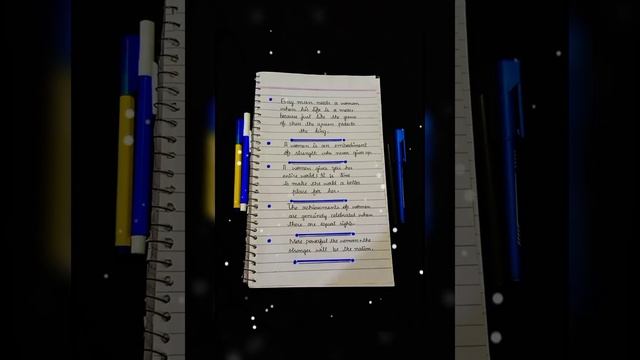 Every man needs a woman
when his life is a mess
because just like the game
of chess the queen protects
the king.
A women is an embodiment
of strength who never gives up.
A women gives you her
entire world. It is time
to make the world a better
place for her.
The achievements of women
are genuinely celebrated when
there are equal rights.
More powerful the women, the
stronger will be the nation.